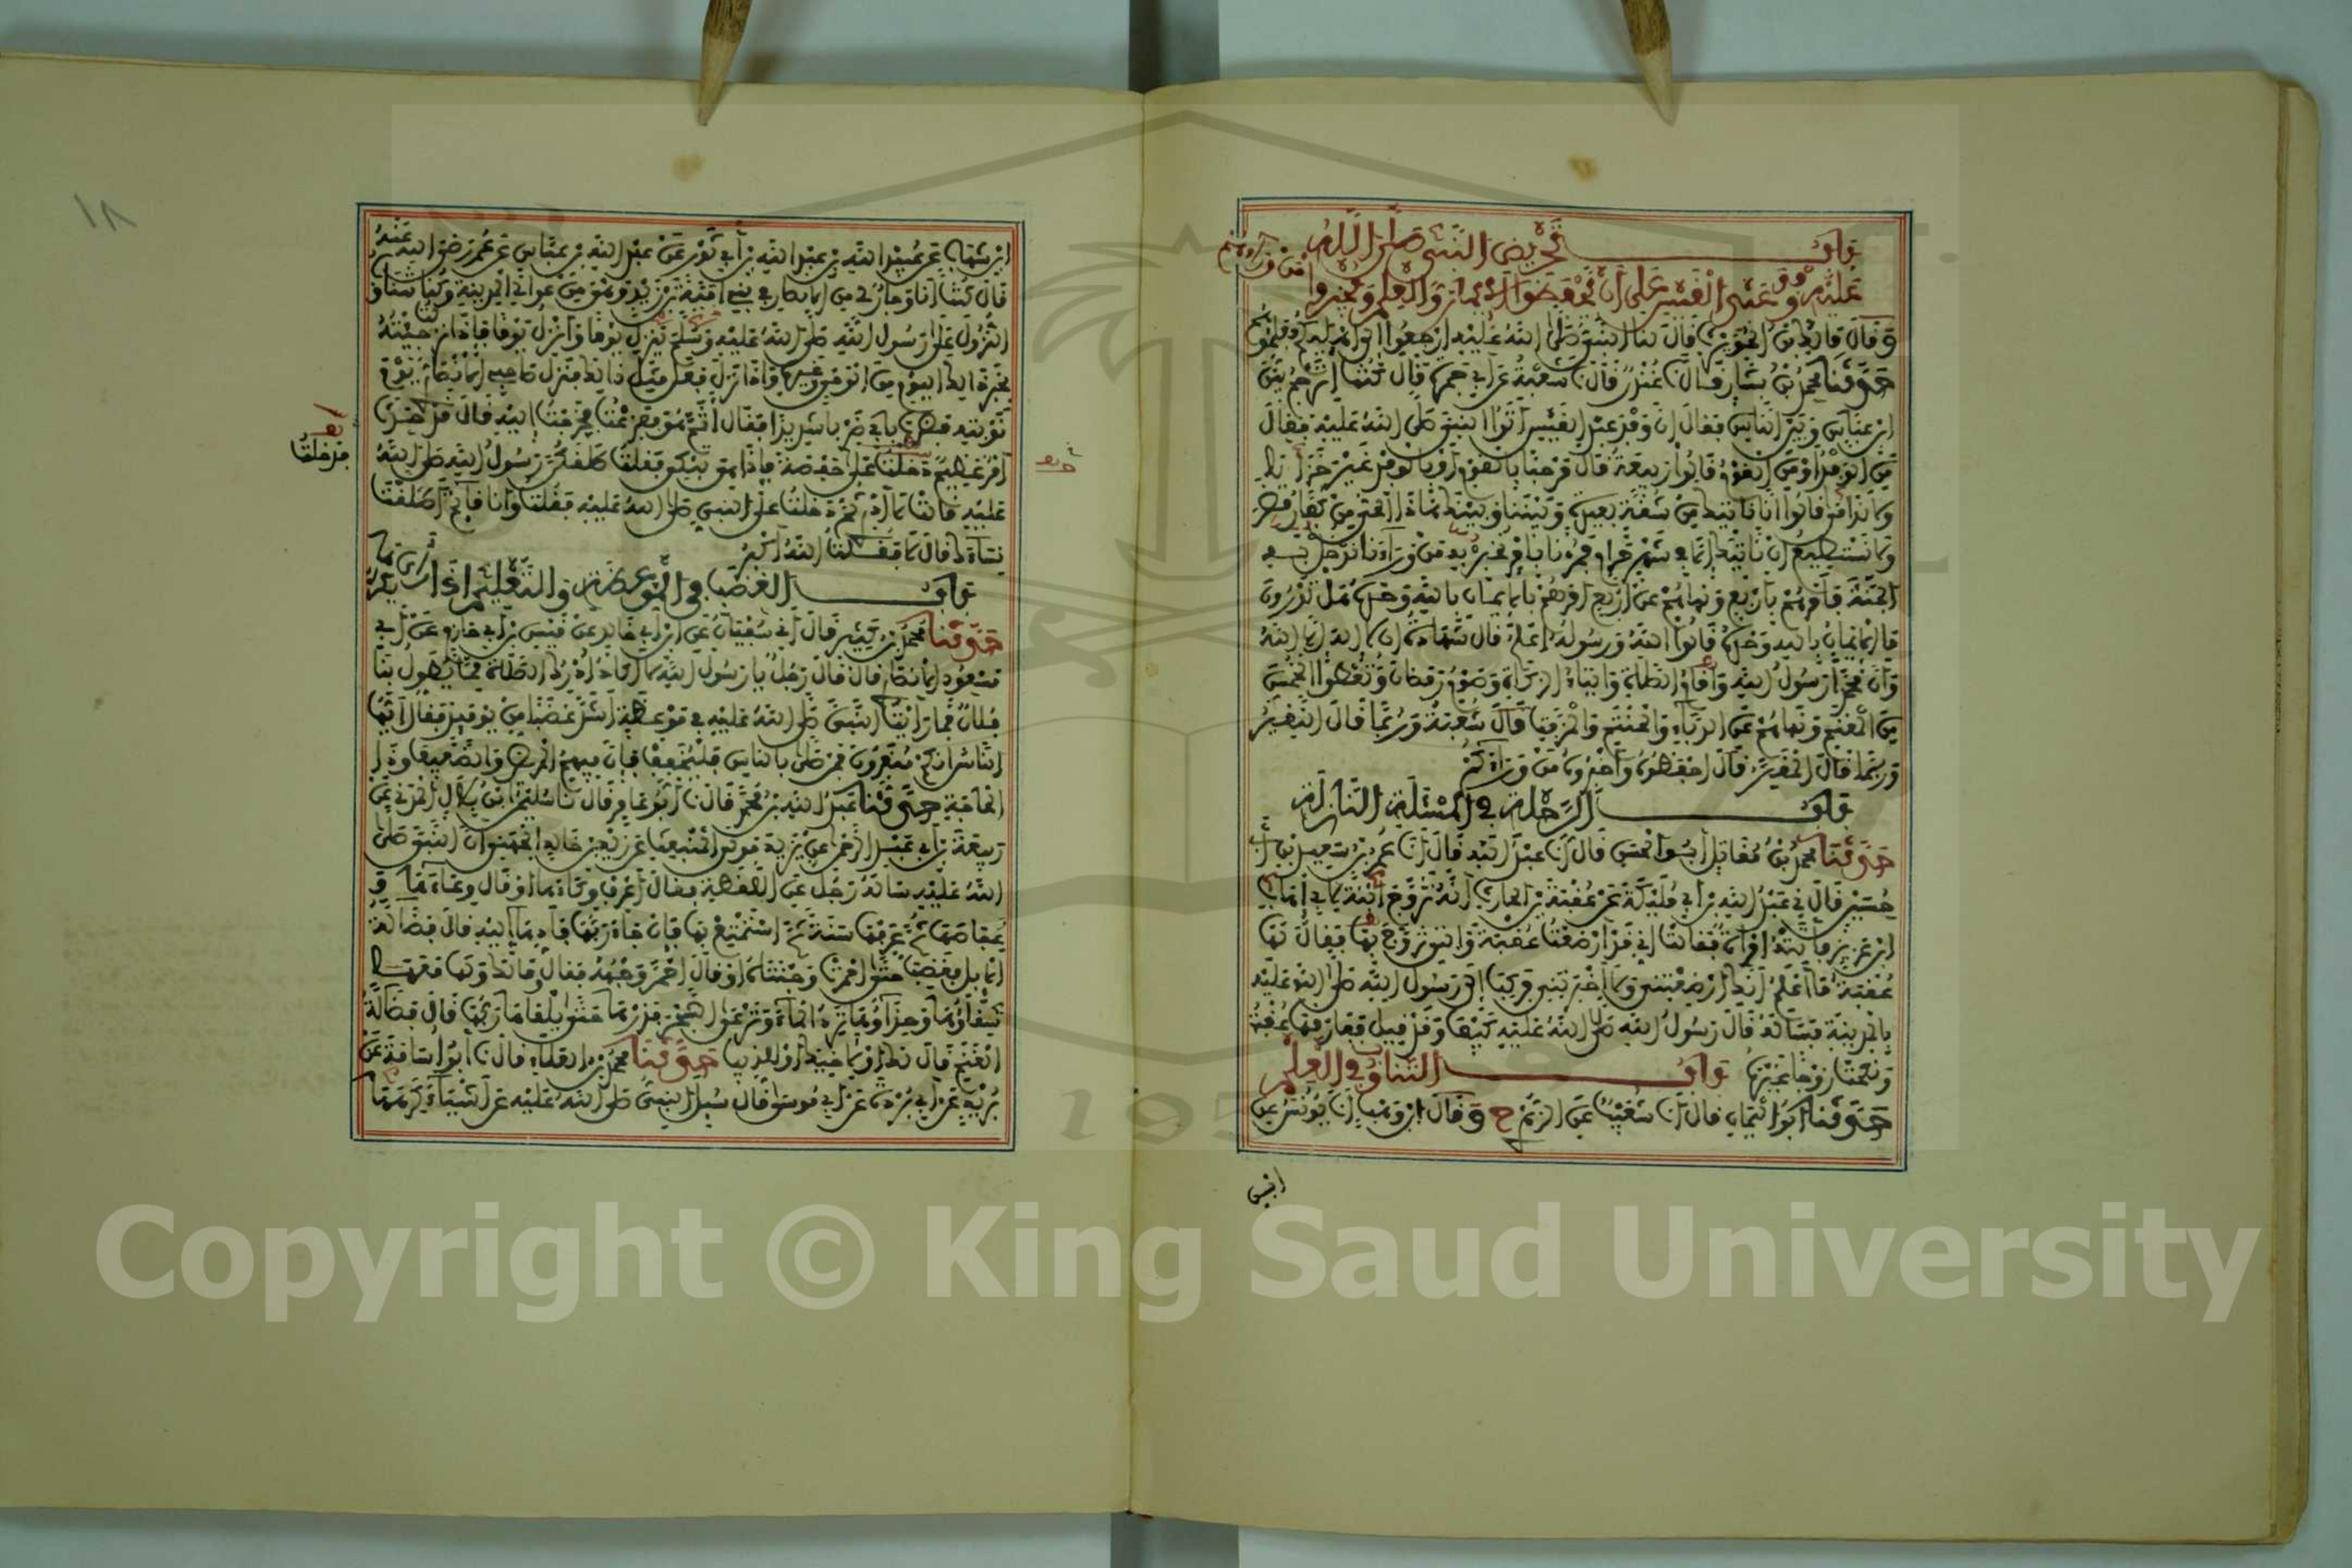 باب تحريض النبي صلى الله
عليه وسلم وفد عبد القيس على أن يحفظوا الإيمان والعلم ويخبروا
من وراءهم
وقال مالك بن الحويرث قال لنا النبي صلى الله عليه ارجعوا إلى أهليكم فعلموهم
حدثنا محمد بن بشار قال نا غندر قال نا شعبة عن أبي جمرة قال كنت أترجم بين
ابن عباس وبين الناس فقال إن وفد عبد القيس أتوا النبي صلى الله عليه فقال
من الوفد أو من القوم قالوا ربيعة قال مرحبا بالقوم أو بالوفد غير خزايا
ولا ندامى قالوا إنا نأتيك من شقة بعيدة وبيننا وبينك هذا الحي من كفار مضر
ولا نستطيع أن نأتيك إلا في شهر حرام فمرنا بأمر نخبر به من وراءنا ندخل به
الجنة فأمرهم بأربع ونهاهم عن أربع أمرهم بالإيمان بالله وحده هل تدرون
ما الإيمان بالله وحده قالوا الله ورسوله أعلم قال شهادة أن لا إله إلا الله
وأن محمدا رسول الله وإقام الصلاة وإيتاء الزكاة وصوم رمضان وتعطوا الخمس
من المغنم ونهاهم عن الدباء والحنتم والمزفت قال شعبة وربما قال النقير
وربما قال المقير قال احفظوه وأخبروه من وراءكم
باب الرحلة في المسئلة النازلة
حدثنا محمد بن مقاتل أبو الحسن قال أنا عبد الله قال أنا عمر بن سعيد بن أبي
حسين قال ني عبد الله بن أبي مليكة عن عقبة بن الحارث أنه تزوج ابنة لأبي إهاب
ابن عزيز فأتته امرأة فقالت إني قد أرضعت عقبة والتي تزوج بها فقال لها
عقبة ما أعلم أنك أرضعتني ولا أخبرتني فركب إلى رسول الله صلى الله عليه
بالمدينة فسأله قال رسول الله صلى الله عليه كيف وقد قيل ففارقها عقبة
ونكحت زوجا غيره باب التناوب في العلم
حدثنا أبو اليمان قال أنا شعيب عن الزهري ح وقال ابن وهب أنا يونس عن
ابن شهاب عن عبيد الله بن عبد الله بن أبي ثور عن عبد الله بن عباس عن عمر رضي الله عنه
قال كنت أنا وجار لي من الأنصار في بني أمية بن زيد وهو من عوالي المدينة وكنا نتناوب
النزول على رسول الله صلى الله عليه وسلم ينزل يوما وأنزل يوما فإذا نزلت جئته
بخبر ذلك اليوم من الوحي وغيره وإذا نزل فعل مثل ذلك فنزل صاحبي الأنصاري يوم
نوبته فضرب بابي ضربا شديدا فقال أثم هو ففزعت فخرجت إليه فقال قد حدث
أمر عظيم دخلت على حفصة فإذا هي تبكي فقلت طلقكن رسول الله صلى الله
عليه قالت لا أدري ثم دخلت على النبي صلى الله عليه فقلت وأنا قائم أطلقت
نساءك قال لا فقلت الله أكبر
باب الغضب في الموعظة والتعليم إذا رأى ما يكره
حدثنا محمد بن كثير قال أني سفيان عن ابن أبي خالد عن قيس بن أبي حازم عن أبي
مسعود الأنصاري قال قال رجل يا رسول الله لا أكاد أدرك الصلاة مما يطول بنا
فلان فما رأيت النبي صلى الله عليه في موعظة أشد غضبا من يومئذ فقال أيها
الناس إنكم منفرون فمن صلى بالناس فليخفف فإن فيهم المريض والضعيف وذا
الحاجة حدثنا عبد الله بن محمد قال نا أبو عامر قال نا سليمان بن بلال المدني عن
ربيعة بن أبي عبد الرحمن عن يزيد مولى المنبعث عن زيد بن خالد الجهني أن النبي صلى
الله عليه سأله رجل عن اللقطة فقال اعرف وكاءها أو قال وعاءها و
عفاصها ثم عرفها سنة ثم استمتع بها فإن جاء ربها فأدها إليه قال فضالة
الإبل فغضب حتى احمرت وجنتاه أو قال احمر وجهه فقال ما لك ولها معها
سقاؤها وحذاؤها ترد الماء وترعى الشجر فذرها حتى يلقاها ربها قال فضالة
الغنم قال لك أو لأخيك أو للذيب حدثنا محمد بن العلاء قال نا أبو أسامة عن
بريد عن أبي بردة عن أبي موسى قال سئل النبي صلى الله عليه عن أشياء كرهها
فدخلت
١٨